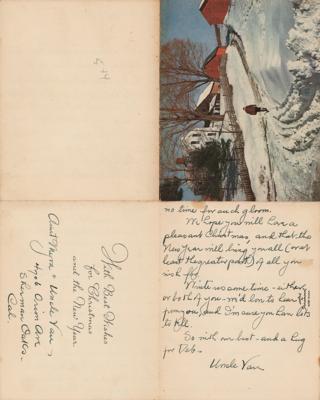 no time for such gloom.
We hope you will have a
pleasant Christmas, and that the
New Year will bring you all (or at
least the greatest part) of all you
wish for.
Write us some time - either
or both of you. We'd love to hear
from you, and I'm sure you have lots
to tell.
So with our best - and a hug
for Deb.
Uncle Van
With Best Wishes
for Christmas
and the New Year
Aunt & Uncle Van
Orion Ave
Sherman Oaks.
Cal.